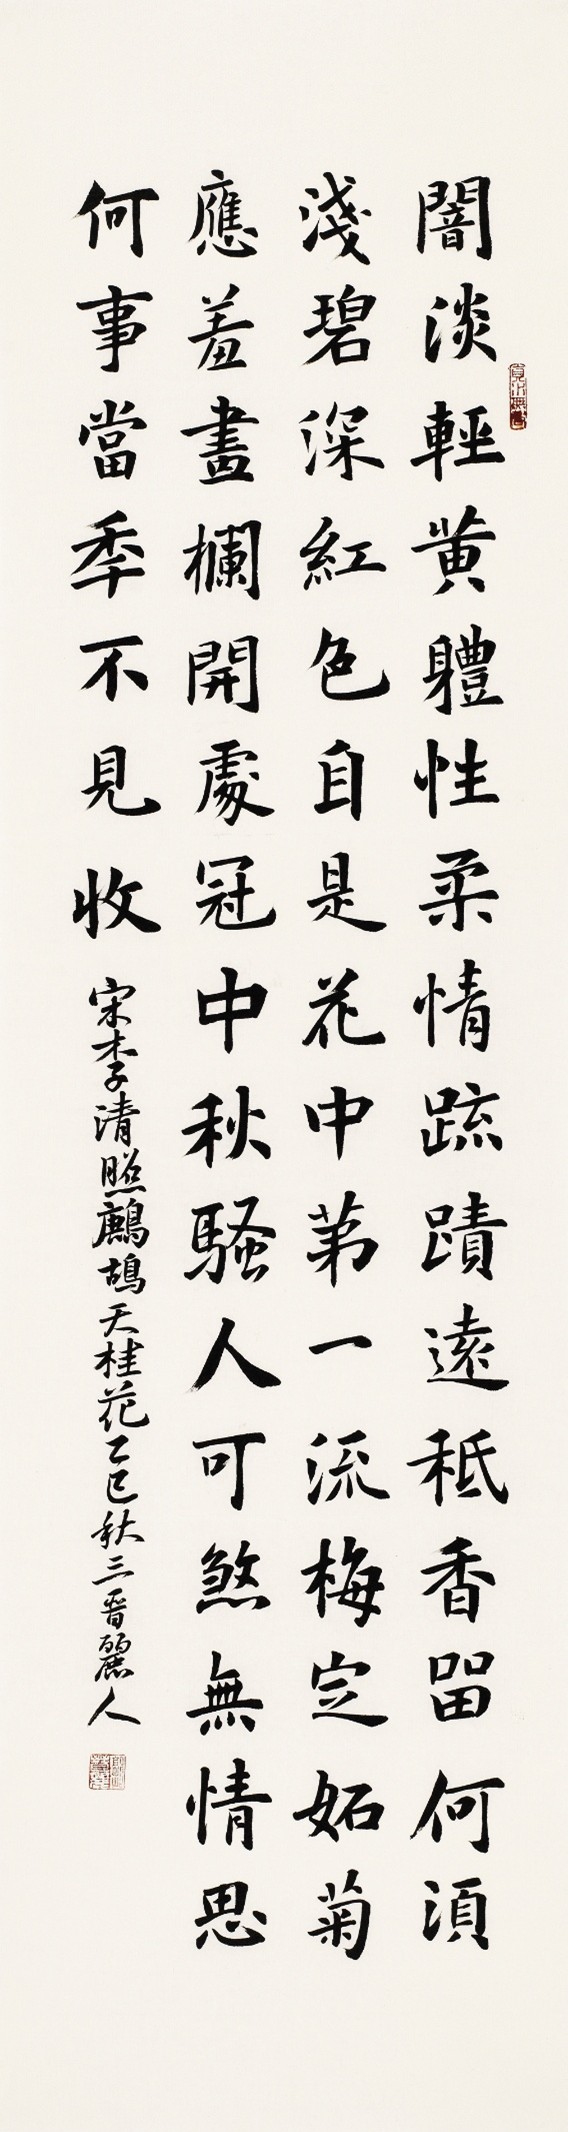 闇淡輕黄體性柔情疏蹟遠秪香留何須
淺碧深紅色自是花中苐一流梅定妬菊
應羞畫欄開處冠中秋騷人可煞無情思
何事當秊不見收
宋李清照鷓鴣天桂花乙巳秋三晋麗人